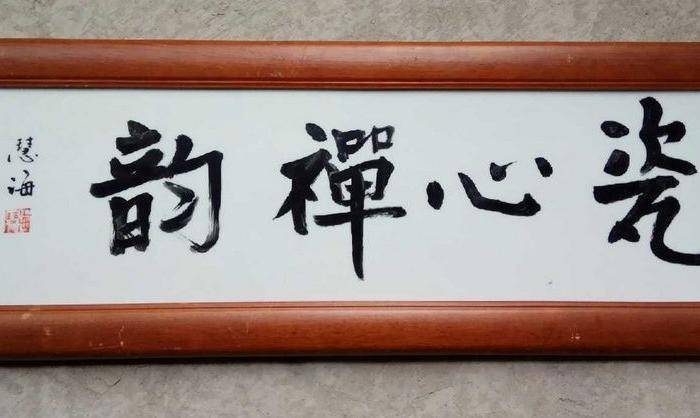 瓷心禪韵
慧海